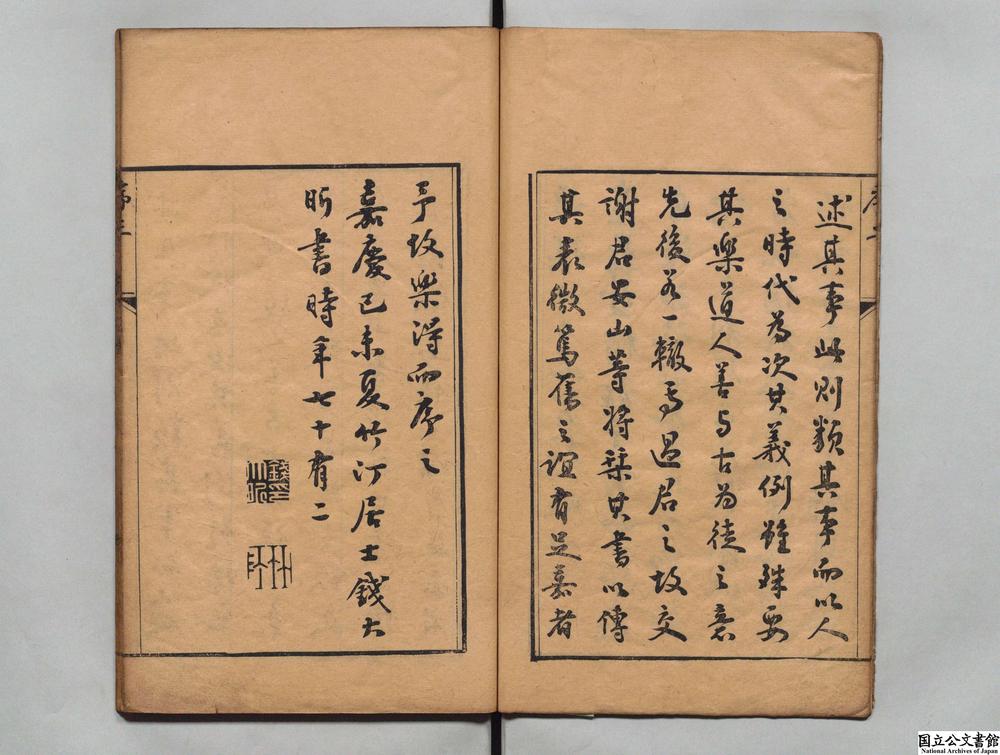 述其事此則類其事而以人
之時代為次其義例雖殊要
其樂道人善与古為徒之意
先後若一轍焉過君之故交
謝君安山等將琹其書以傳
其表微篤舊之誼有足嘉者
予故樂得而序之
嘉慶己未夏竹汀居士錢大
昕書時年七十有二
序二
序三
国立公文書館
National Archives of Japan